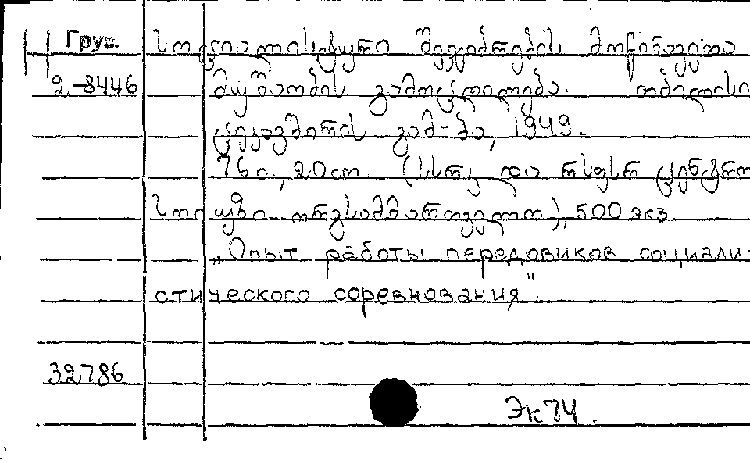 Груз. სოციალისტური შეჯიბრების მოწინავეთა
2-8446 მუშაობის გამოცდილება. თბილისი
ტექკავშირის გამ-ბა, 1949.
76 с., 20 см. (სსრკ და
სოც. ), 500 экз.
„Опыт работы передовиков социали-
стического соревнования".
32786
Эк74.